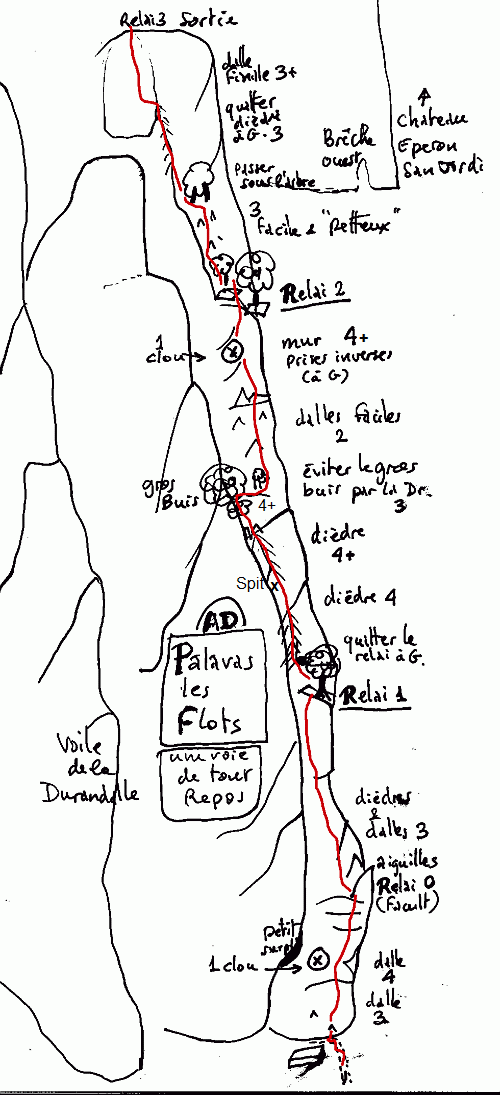 Relai 3 Sortie
dalle
finale 3+
quitter
dièdre
à G. 3
passer
sous l'arbre
Brêche
ouest
Chateau
Eperon
San Jordi
3
facile & "Petteux"
Relai 2
1
clou
mur 4+
prises inverses
(à G)
dalles faciles
2
gros
Buis
éviter le gros
buis par la Dr.
3
4+
dièdre
4+
Spit x
dièdre 4
AD
Palavas
les
Flots
une voie
de tour
Repos
quitter le
relai à G.
Relai 1
Voile
de la
Durandelle
dièdres
&
dalles 3
aiguilles
Relai 0
(Facult)
petit
surpl
1 clou
dalle
4
dalle
3